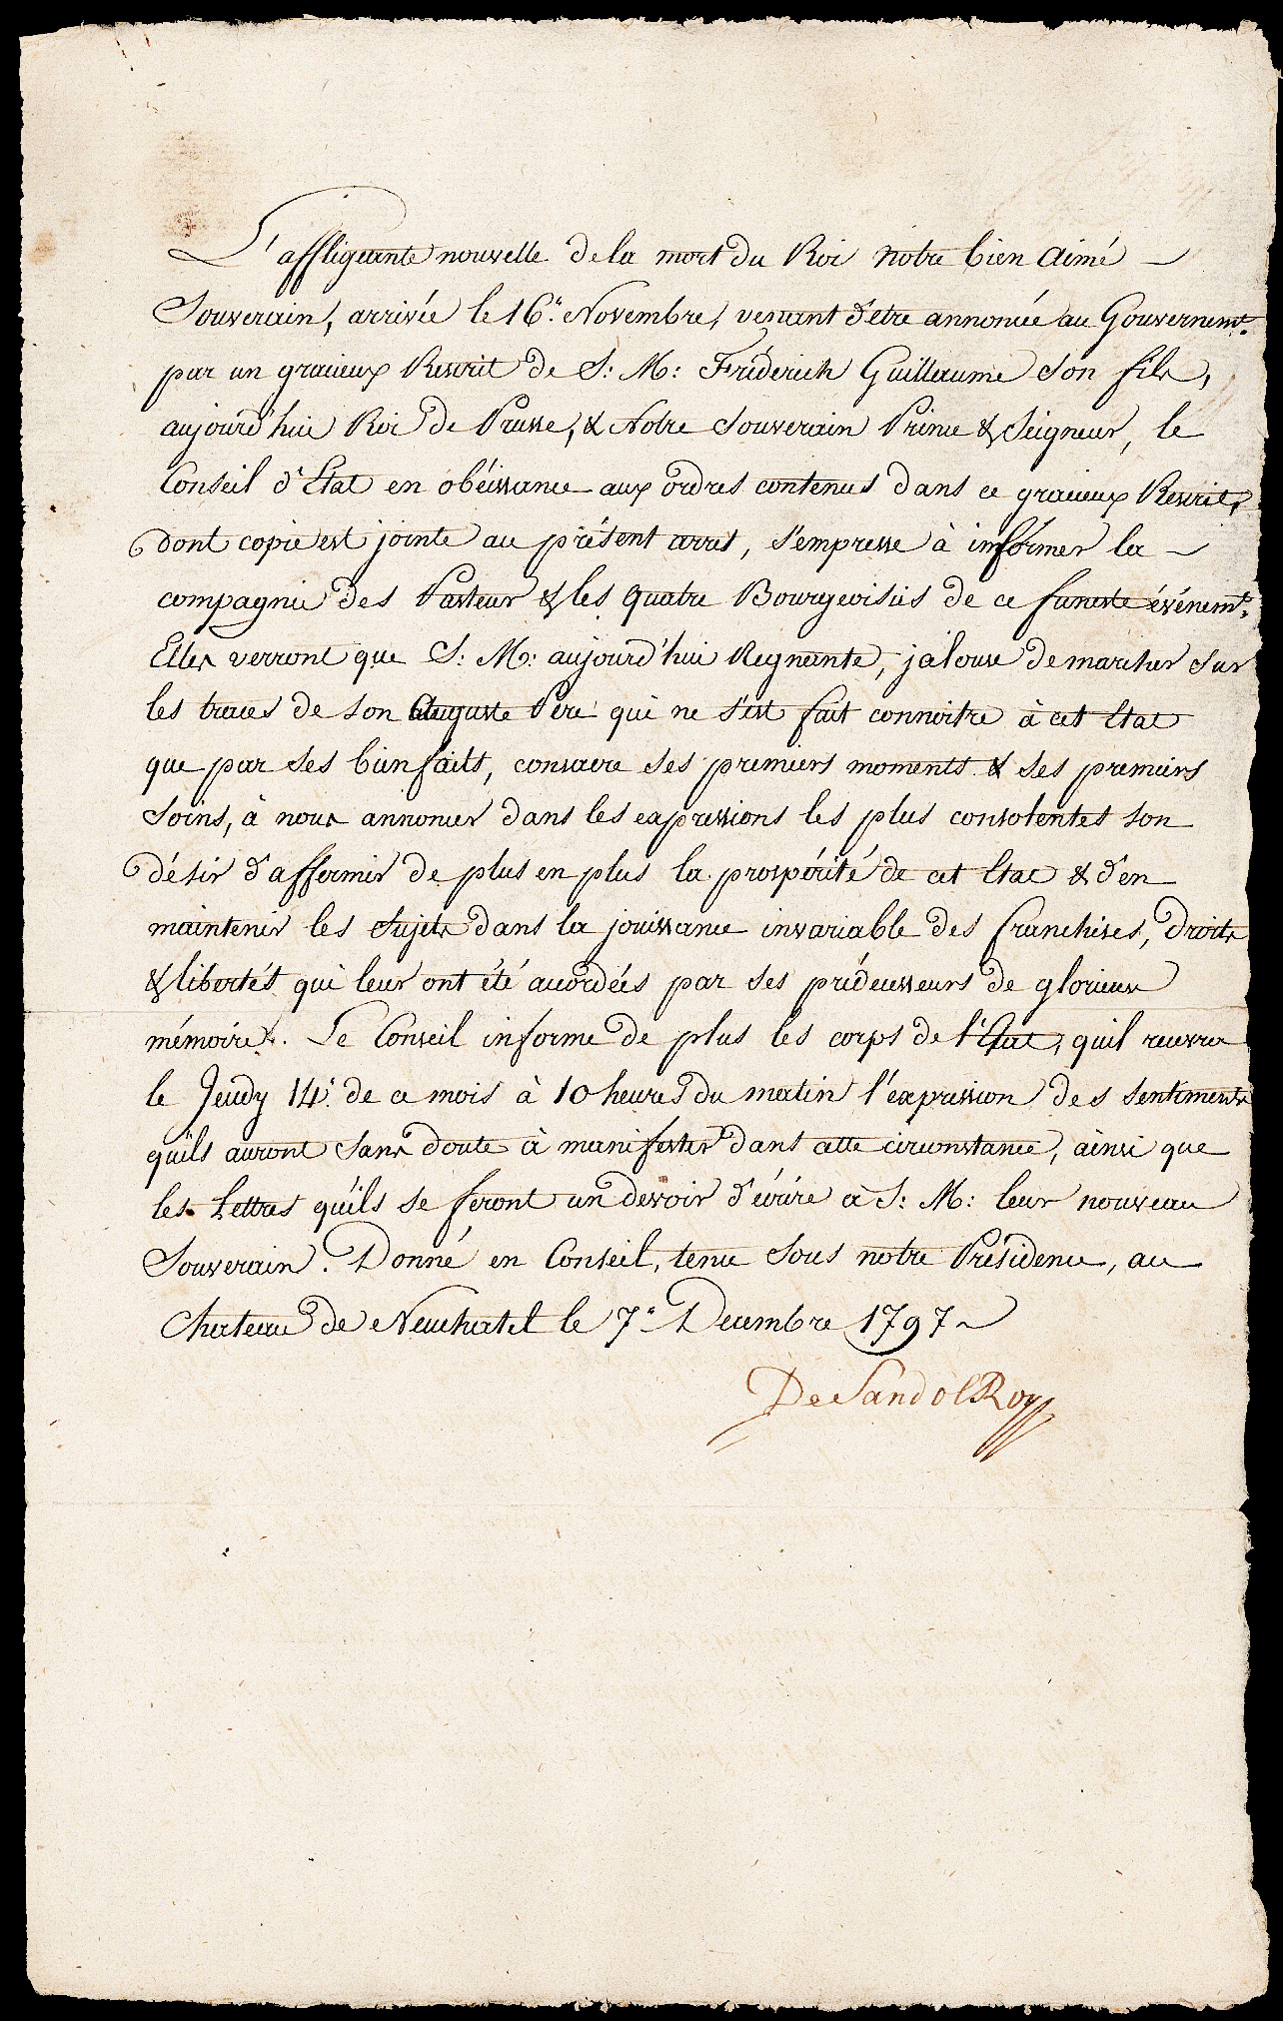 L'affligeante nouvelle de la mort du Roi notre bien aimé
Souverain, arrivée le 16e. Novembre, venant d'etre annoncée au Gouvernemt.
par un gracieux Rescrit de S: M: Fréderich Guillaume son fils,
aujourd'hui Roi de Prusse, & Notre Souverain Prince & Seigneur, le
Conseil d'Etat en obéissance aux ordres contenus dans ce gracieux Rescrit,
dont copie est jointe au présent arret, s'empresse à informer la
compagnie des Pasteur & les quatre Bourgeoisies de ce funeste événemt.
Elles verront que S: M: aujourd'hui Regnante, jalouse de marcher sur
les traces de son Auguste Père qui ne s'est fait connoitre à cet Etat
que par ses bienfaits, consacre ses premiers moments & ses premiers
soins, à nous annoncer dans les expressions les plus consolentes son
désir d'affermir de plus en plus la prospérité de cet Etat & d'en
maintenir les sujets dans la jouissance invariable des franchises, droits
& libertés qui leur ont été accordées par ses prédecesseurs de glorieuse
mémoire. Le Conseil informe de plus les corps de l'Etat, quil recevra
le Jeudy 14e. de ce mois à 10 heures du matin l'expression des sentiments
qu'ils auront sans doute à manifester dans cette circonstance, ainsi que
les Lettres qu'ils se feront un devoir d'écrire à S: M: leur nouveau
Souverain. Donné en Conseil, tenu sous notre Présidence, au
Chateau de Neuchatel le 7e Decembre 1797
De Sandol Roy